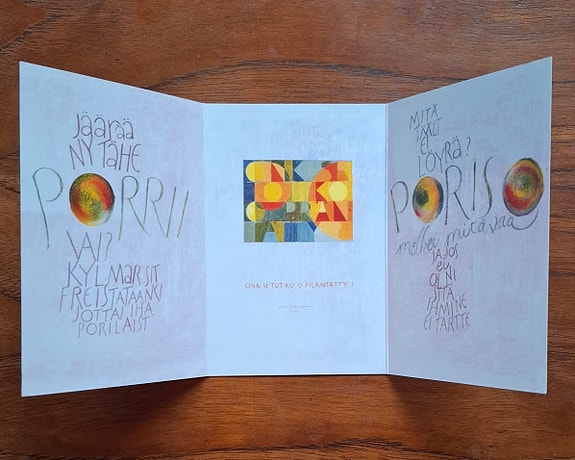 JÄÄRÄÄ
NY TÄHE
PORRII
VAI?
KYL MAR SIT
FREISTATAANKI
JOTTAI IHA
PORILAIST
ONK
KO
ONK SE TOTKO O PRÄNTÄTTY?
MITÄ
TÄÄLT
EI
LÖYRÄ?
PORISO
melkeu mitä vaa
JA JOS
EI
OLNI
SITÄ
IHMINE
EI TARTTE